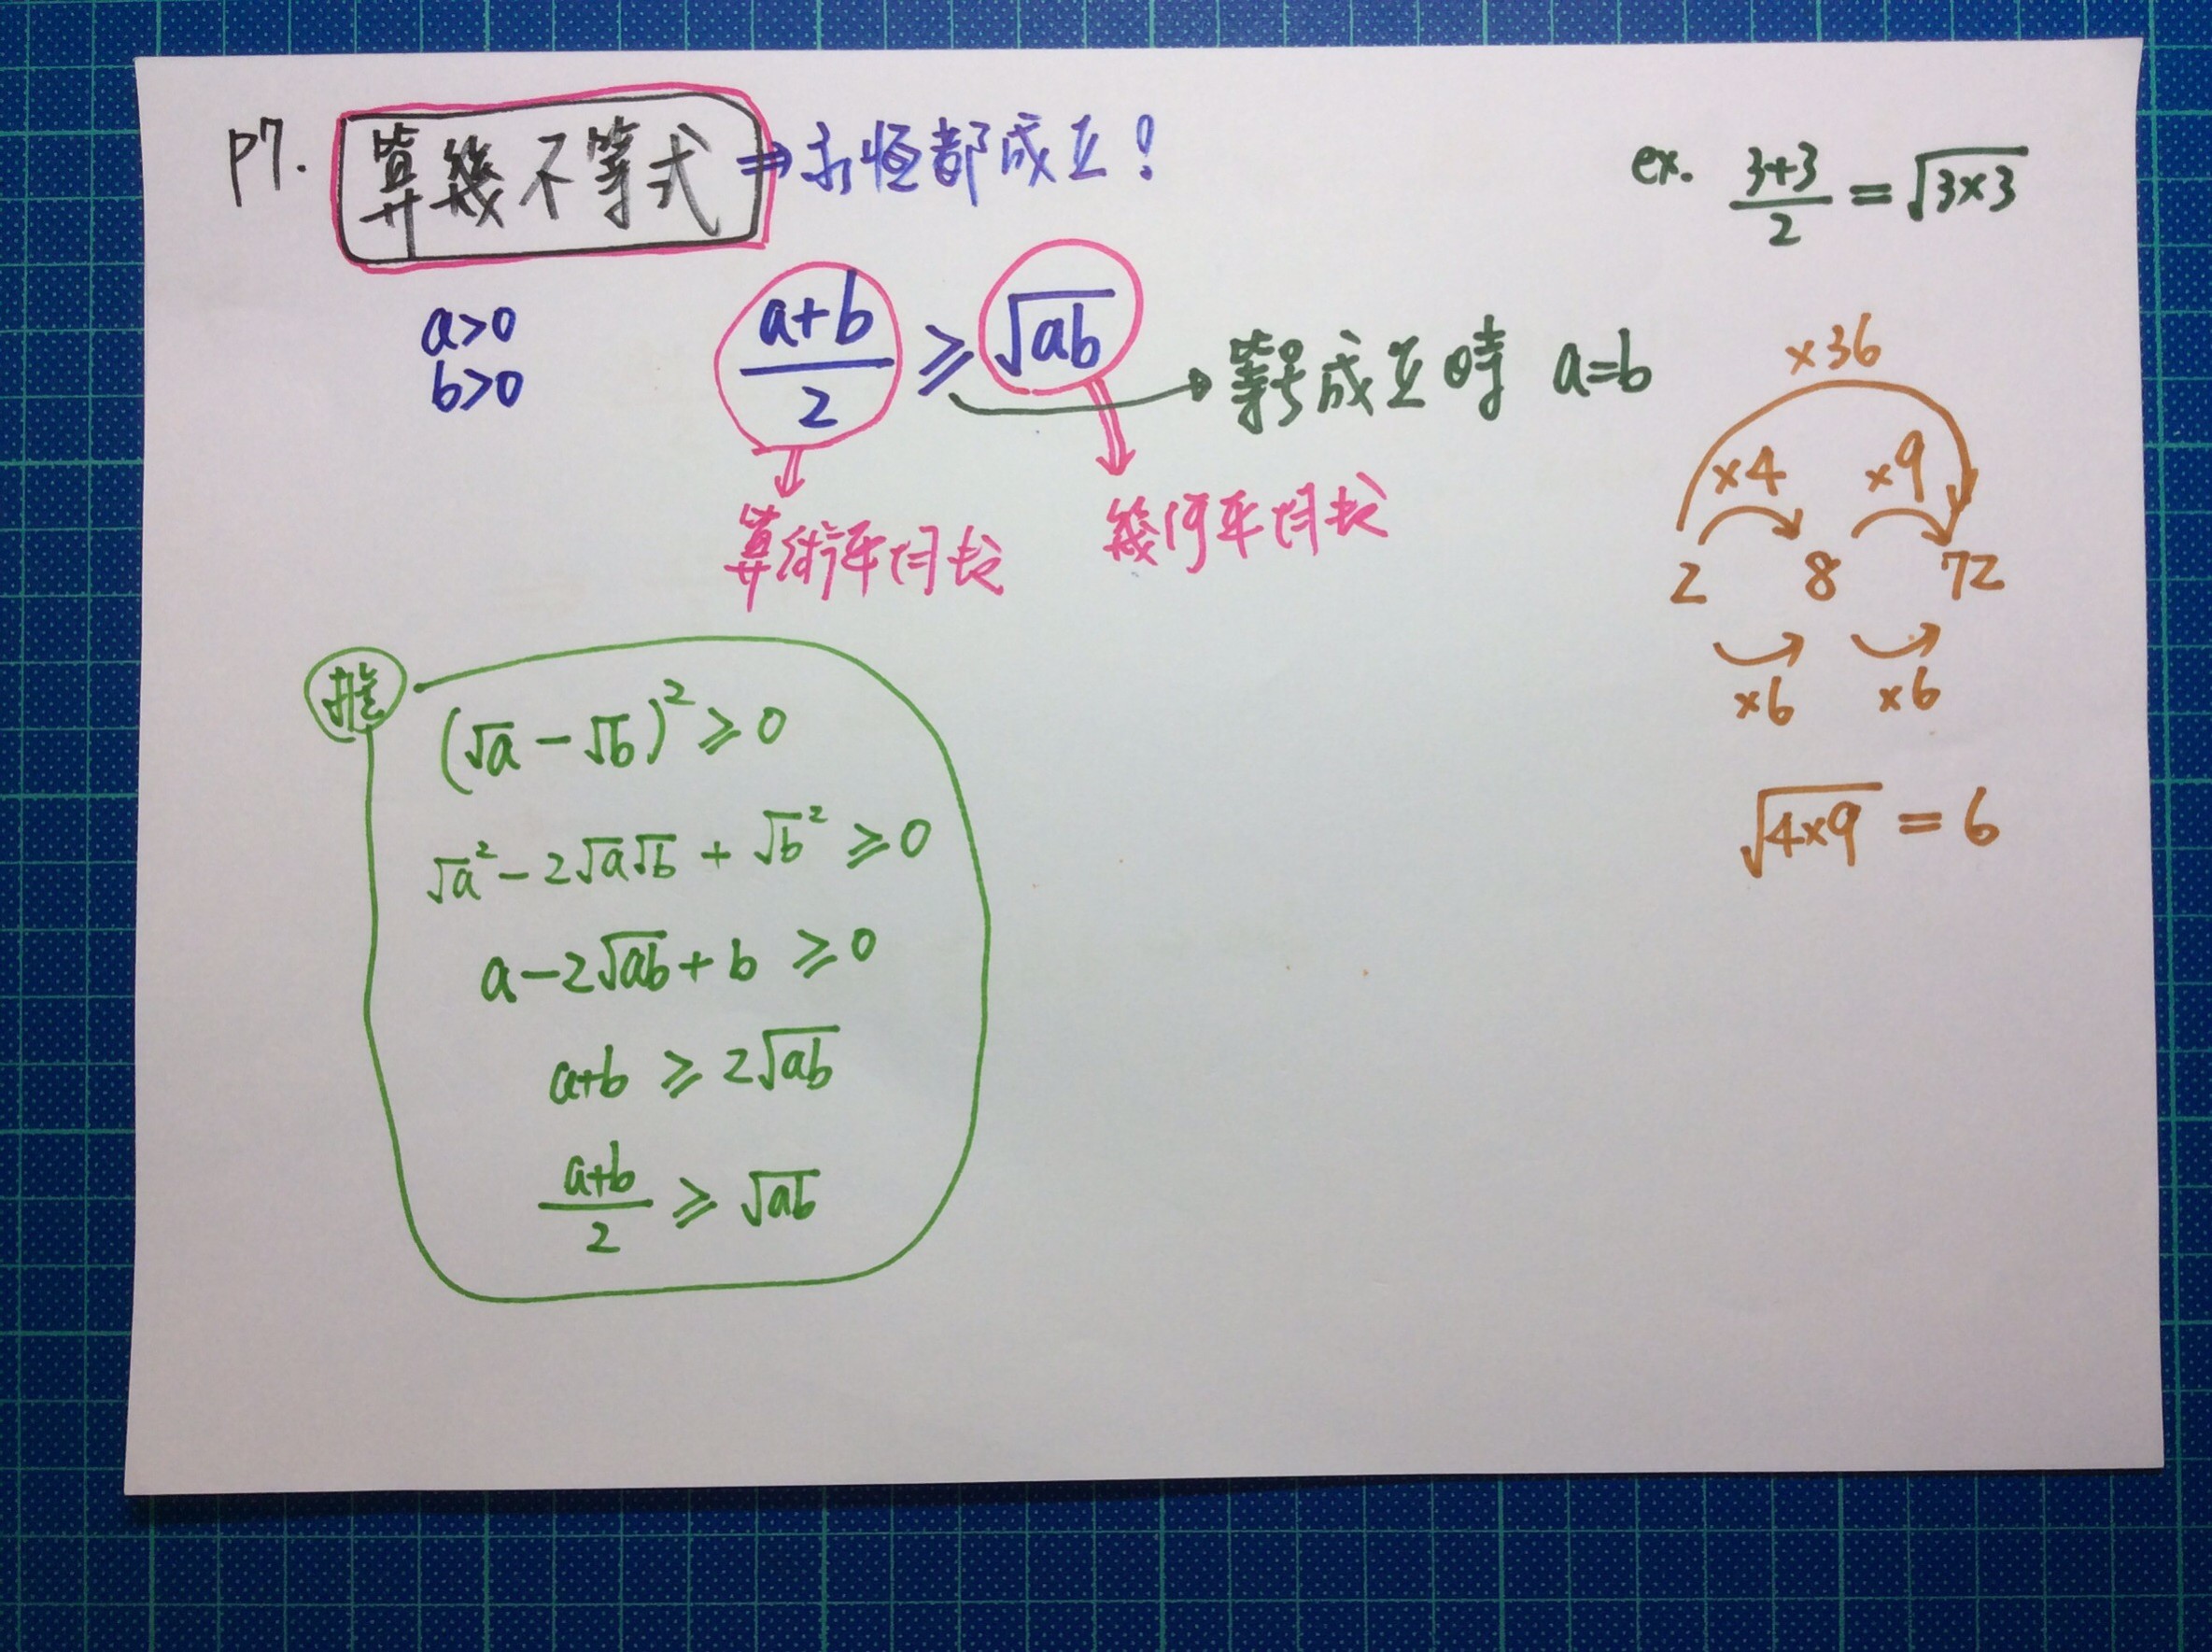 P7. 算幾不等式 ⇒ 永恆都成立!
ex. (3+3)/2 = √(3×3)
a>0
b>0
(a+b)/2 ≥ √(ab) → 等號成立時 a=b
算術平均數
幾何平均數
×36
×4 ×9
2 8 72
×6 ×6
√(4×9) = 6
推
(√a - √b)² ≥ 0
√a² - 2√a√b + √b² ≥ 0
a - 2√(ab) + b ≥ 0
a+b ≥ 2√(ab)
(a+b)/2 ≥ √(ab)